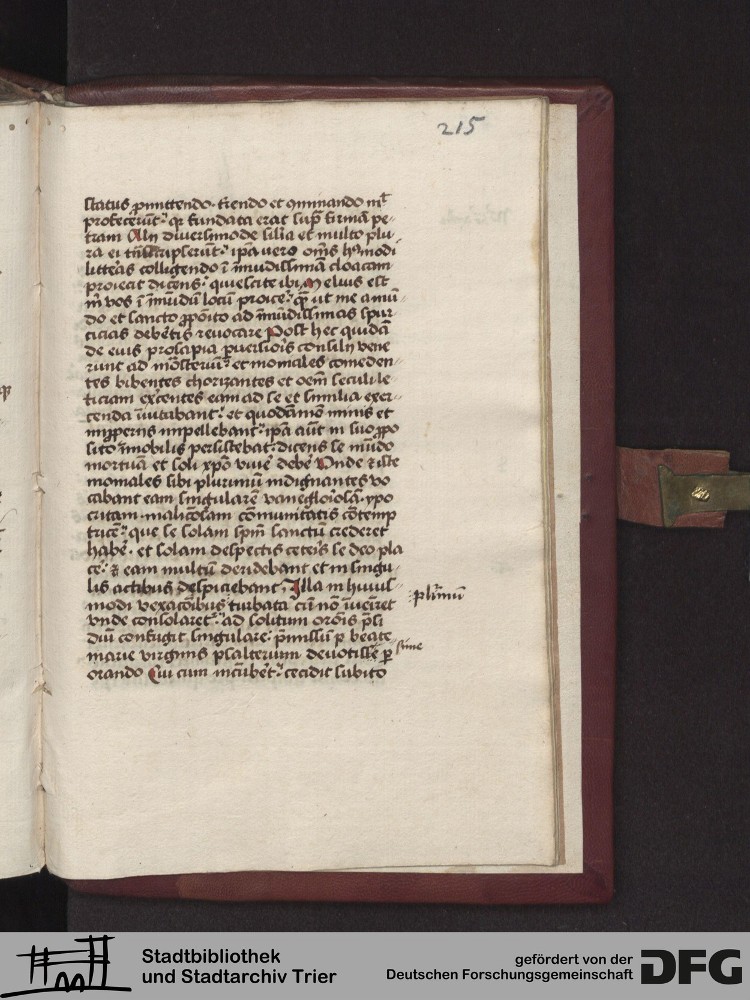 215
status p̄mittendo · t̄rendo et cōminando nil
profecerūt · qr̄ fundata erat sup̄ firmā pe-
tram Alij diversimode silia et multo plu-
ra ei scripserūt · ipa vero om̄s hmōdi
litteras colligendo ī īmūdissimā cloacam
proiecit dicens · quiescite ibi · melius est
vos ī īmūdū locū proice · qͣ ut me a mū-
do et sancto ꝓpoīto ad īmūdissimas spur-
cicias debētis revocare Post hec quidā
de eius prosapia pversiōis consilij vene
runt ad mōsteriū · et moniales comeden-
tes bibentes chorizantes et oēm seculi le-
ticiam exercentes eam ad se et similia exer-
cenda īvitabant · et quodāmō minis et
impellebant · ipā aūt in suo ꝓpo
sito īmobilis persistebat · dicens se mūdo
mortuā et soli xp̄o vivē debē Unde iste
moniales sibi plurimū indignantes vo
cabant eam singularē vaneglōiosā · ypo
critam · maliciosam cōmunitatis cōtemp
tricē · que se solam spm̄ sanctū crederet
habē · et solam despectis ceteīs se deo pla
cē · et eam multū deridebant et in singu-
lis actibus despiciebant · Illa in huius-
modi vexacōibus turbata cū nō īveīret
plīmū
vnde consolaret · ad solitum orōis p̄si
diū confugit singulare · p̄missū p beate
marie virginis psalterium devotissīe p
sime
orando Cui cum incūbēt · cecidit subito
Stadtbibliothek
und Stadtarchiv Trier
gefördert von der
Deutschen Forschungsgemeinschaft
DFG